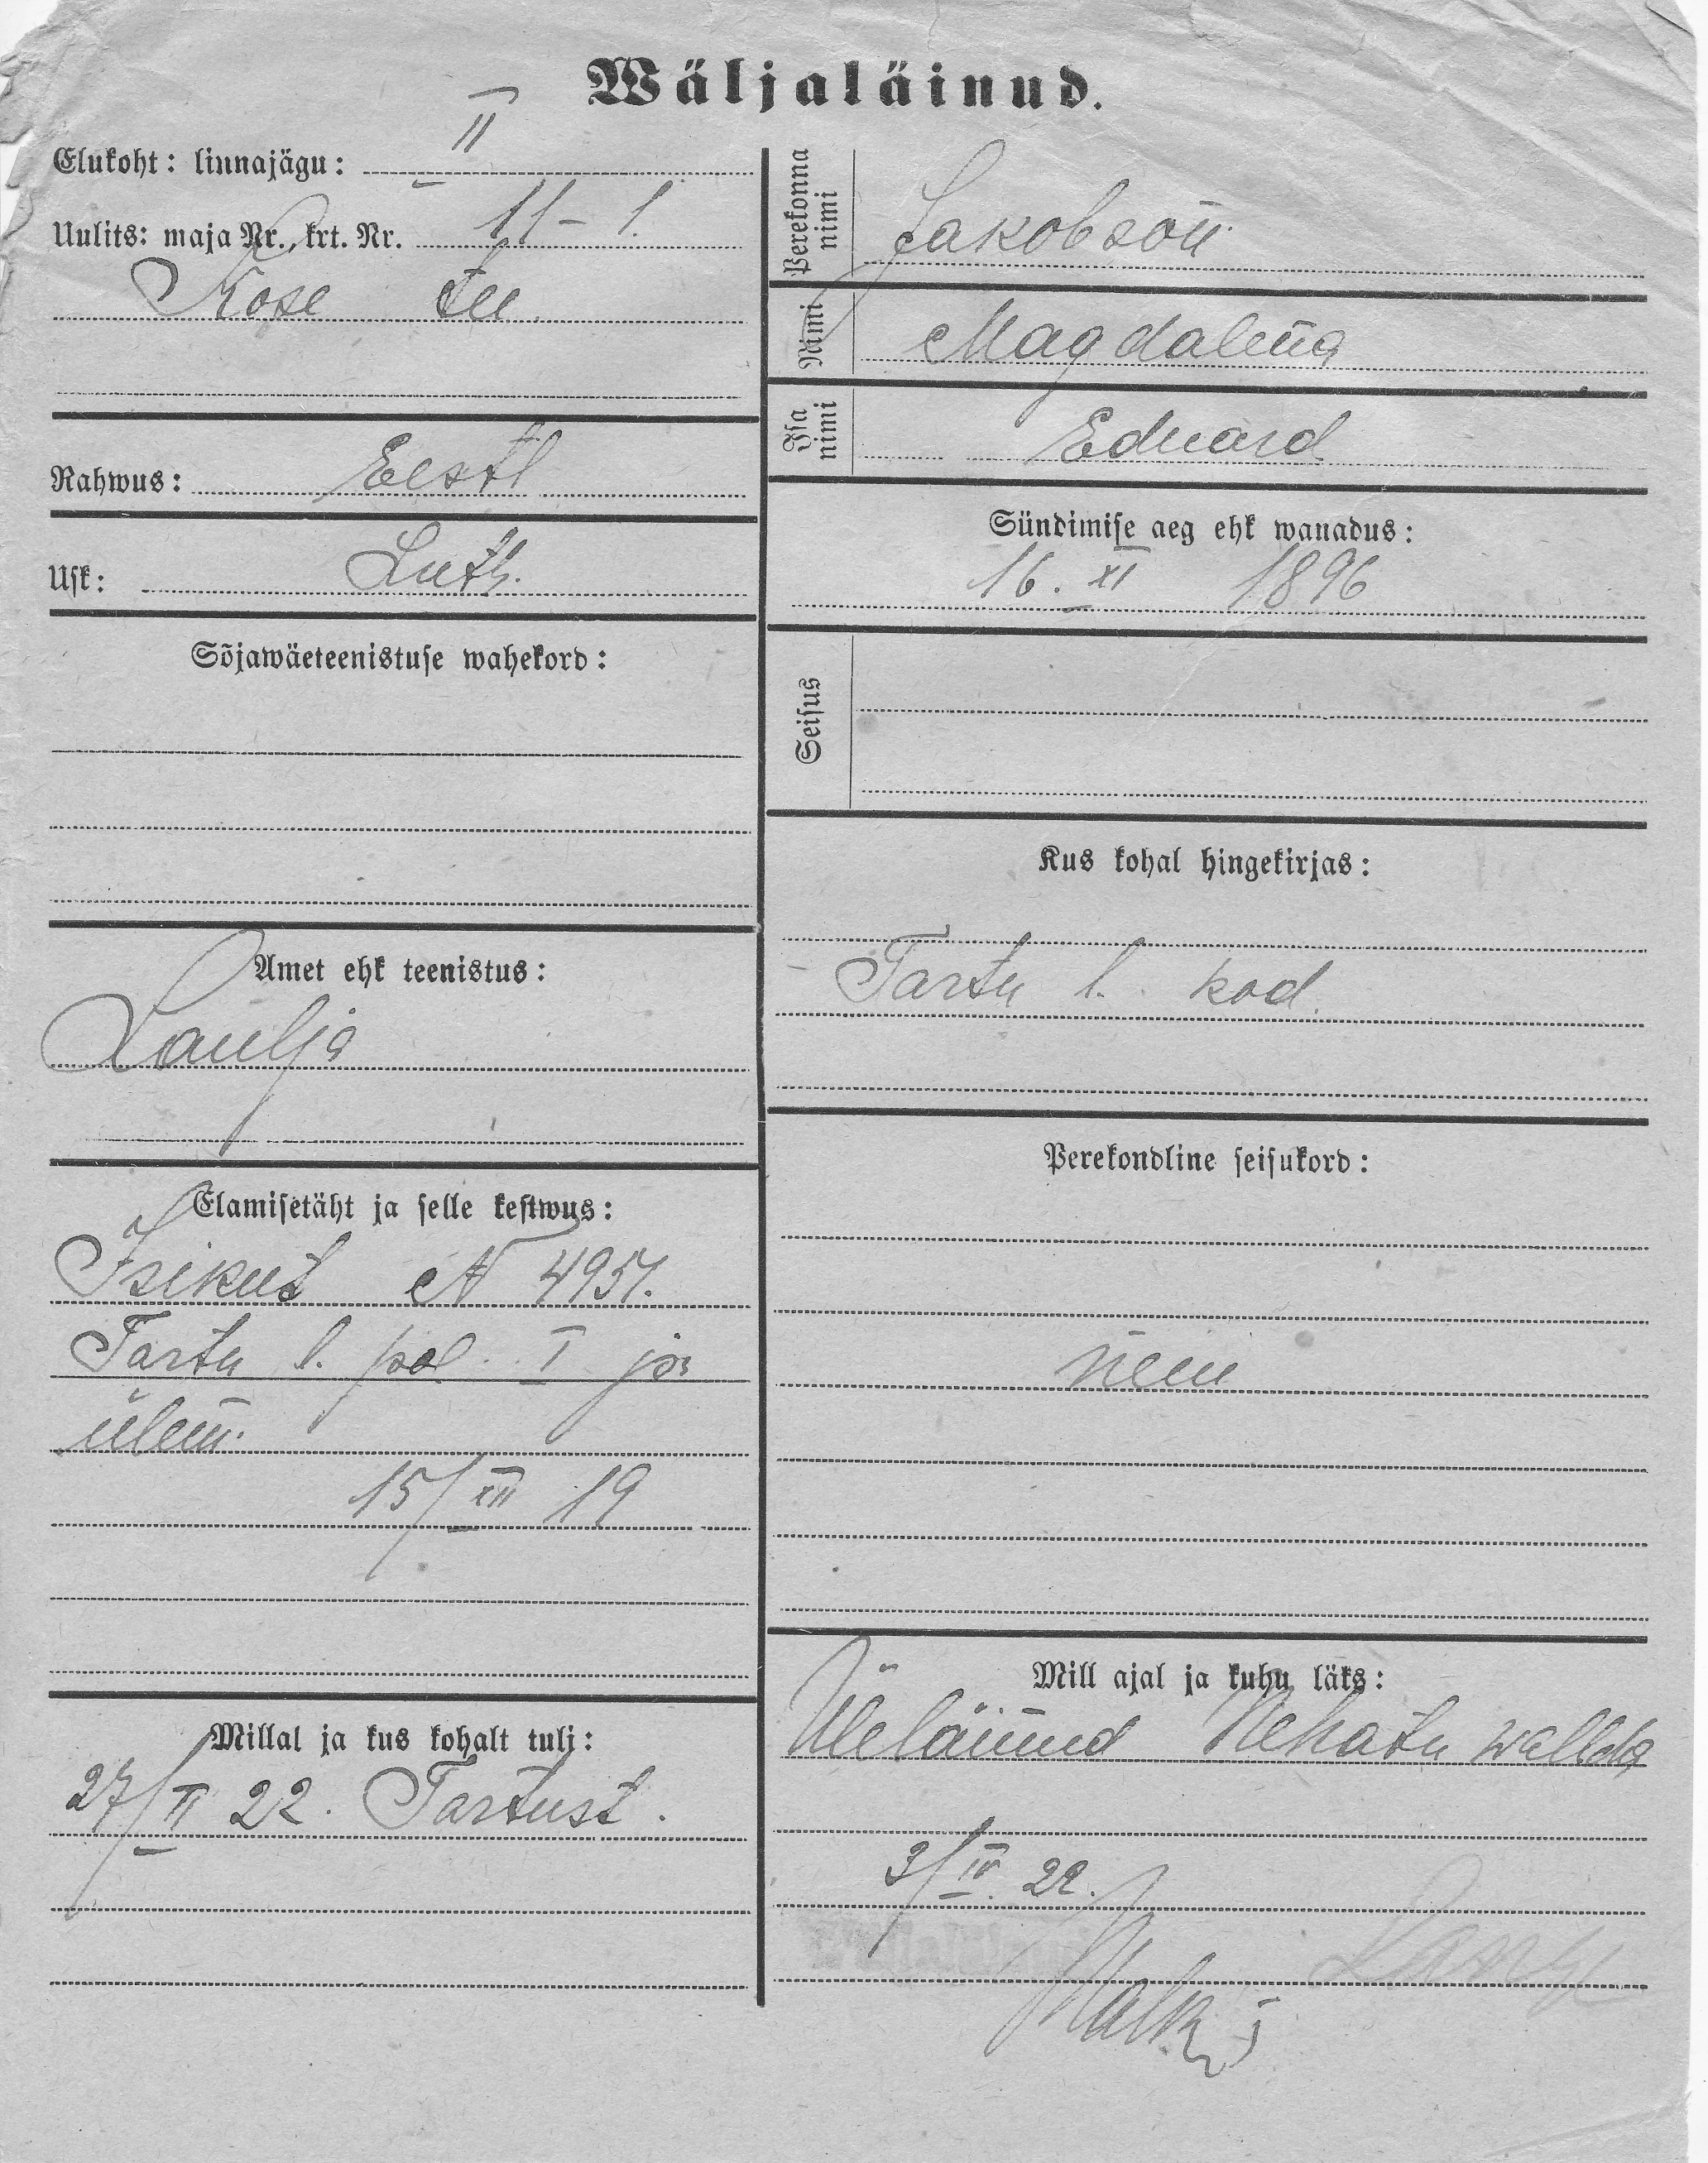 Wäljaläinud.
Elukoht: linnajägu: II
Uulits: maja Nr., krt. Nr. 11 – 1.
Kose tee
Rahwus: Eesti
Usk: Luth.
Sõjawäeteenistuse wahekord:
Amet ehk teenistus:
Laulja
Elamisetäht ja selle kestwus:
Isikut N 4951.
Tartu l. pol. I jsk
ülem.
15/XII 19
Millal ja kus kohalt tuli:
27/II 22. Tartust.
Perekonna nimi
Jakobson
Nimi
Magdalena
Isa nimi
Eduard
Sündimise aeg ehk wanadus:
16. XI 1896
Seisus
Kus kohal hingekirjas:
Tartu l. kod.
Perekondline seisukord:
neiu
Mill ajal ja kuhu läks:
Üleläinud Nehatu wallda
3/IV. 22.